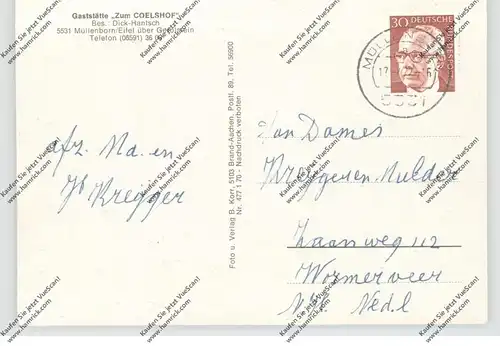 Gaststätte „Zum COELSHOF"
Bes.: Dick-Hantsch
5531 Müllenborn/Eifel über Gerolstein
Telefon (06591) 36
afz. Ma. en
Kregger
Foto u. Verlag B. Korr, 5103 Brand-Aachen, Postf. 89, Tel. 56900
Nr. 477 1 70 - Nachdruck verboten
30
DEUTSCHE
BUNDESPOST
5531
Dames
Mulder
Zaanweg 112
Wormerveer
N.H. Nedl
Kaufen Sie jetzt VueScan!
www.hamrick.com